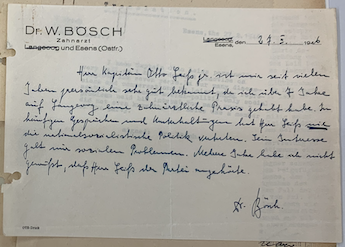 Dr. W. BÖSCH
Zahnarzt
Langeoog und Esens (Ostfr.)
Langeoog
Esens, den 27. I. 1946
Herr Kapitän Otto Leiß jr. ist mir seit vielen
Jahren persönlich sehr gut bekannt, da ich über 7 Jahre
auf Langeoog eine zahnärztliche Praxis gehabt habe. In
häufigen Gesprächen und Unterhaltungen hat Herr Leiß nie
die nationalsozialistische Politik vertreten. Sein Interesse
galt nur sozialen Problemen. Mehrere Jahre habe ich nicht
gewußt, daß Herr Leiß der Partei angehörte.
Dr. Bösch.